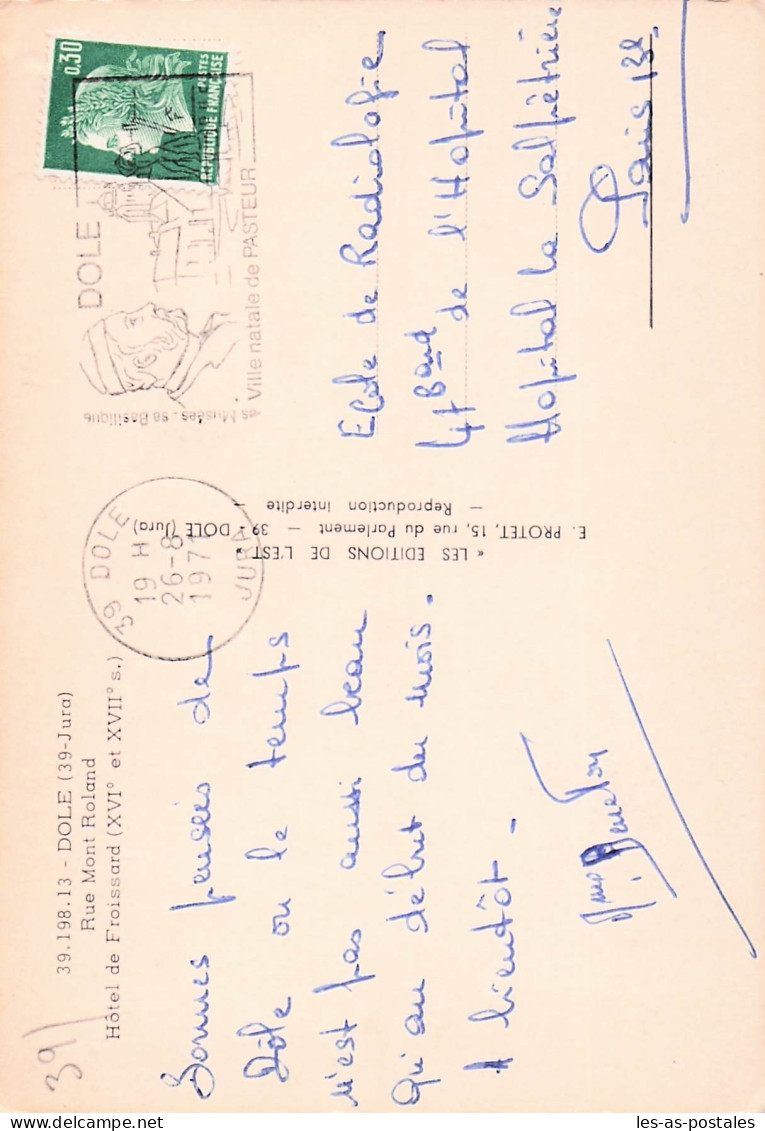 39.198.13 - DOLE (39-Jura)
Rue Mont Roland
Hôtel de Froissard (XVI° et XVII° s.)
39/
Bonnes pensées de
Dôle ou le temps
n'est pas aussi beau
qu'au début du mois.
A bientôt -
« LES EDITIONS DE L'EST »
E. PROTET, 15, rue du Parlement — 39 - DOLE (Jura)
— Reproduction interdite —
0,30
POSTES
REPUBLIQUE FRANÇAISE
DOLE
Ville natale de PASTEUR
ses Musées - sa Basilique
39 DOLE
19 H
26-8
1971
JURA
Ecole de Radiologie
47 Bd de l'Hopital
Hopital la Salpêtrière
Paris 13e
les-as-postales